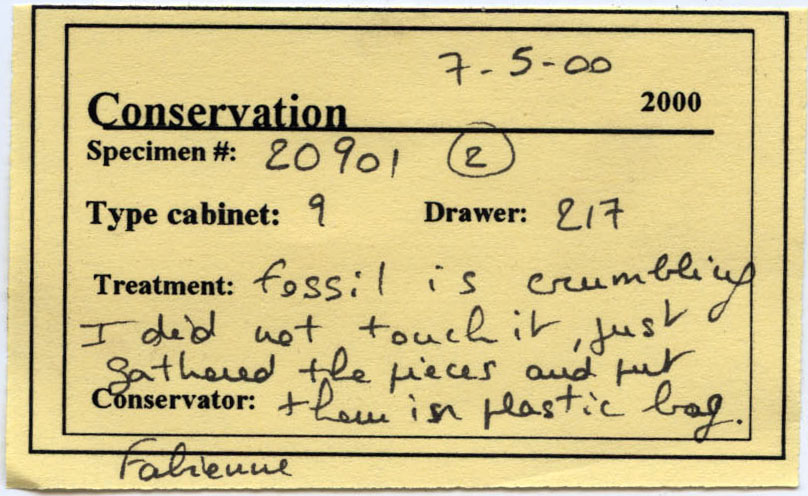 7-5-00
Conservation 2000
Specimen #: 20901 2
Type cabinet: 9 Drawer: 217
Treatment: fossil is crumbling
I did not touch it, just
gathered the pieces and put
Conservator: them in plastic bag.
Fabienne